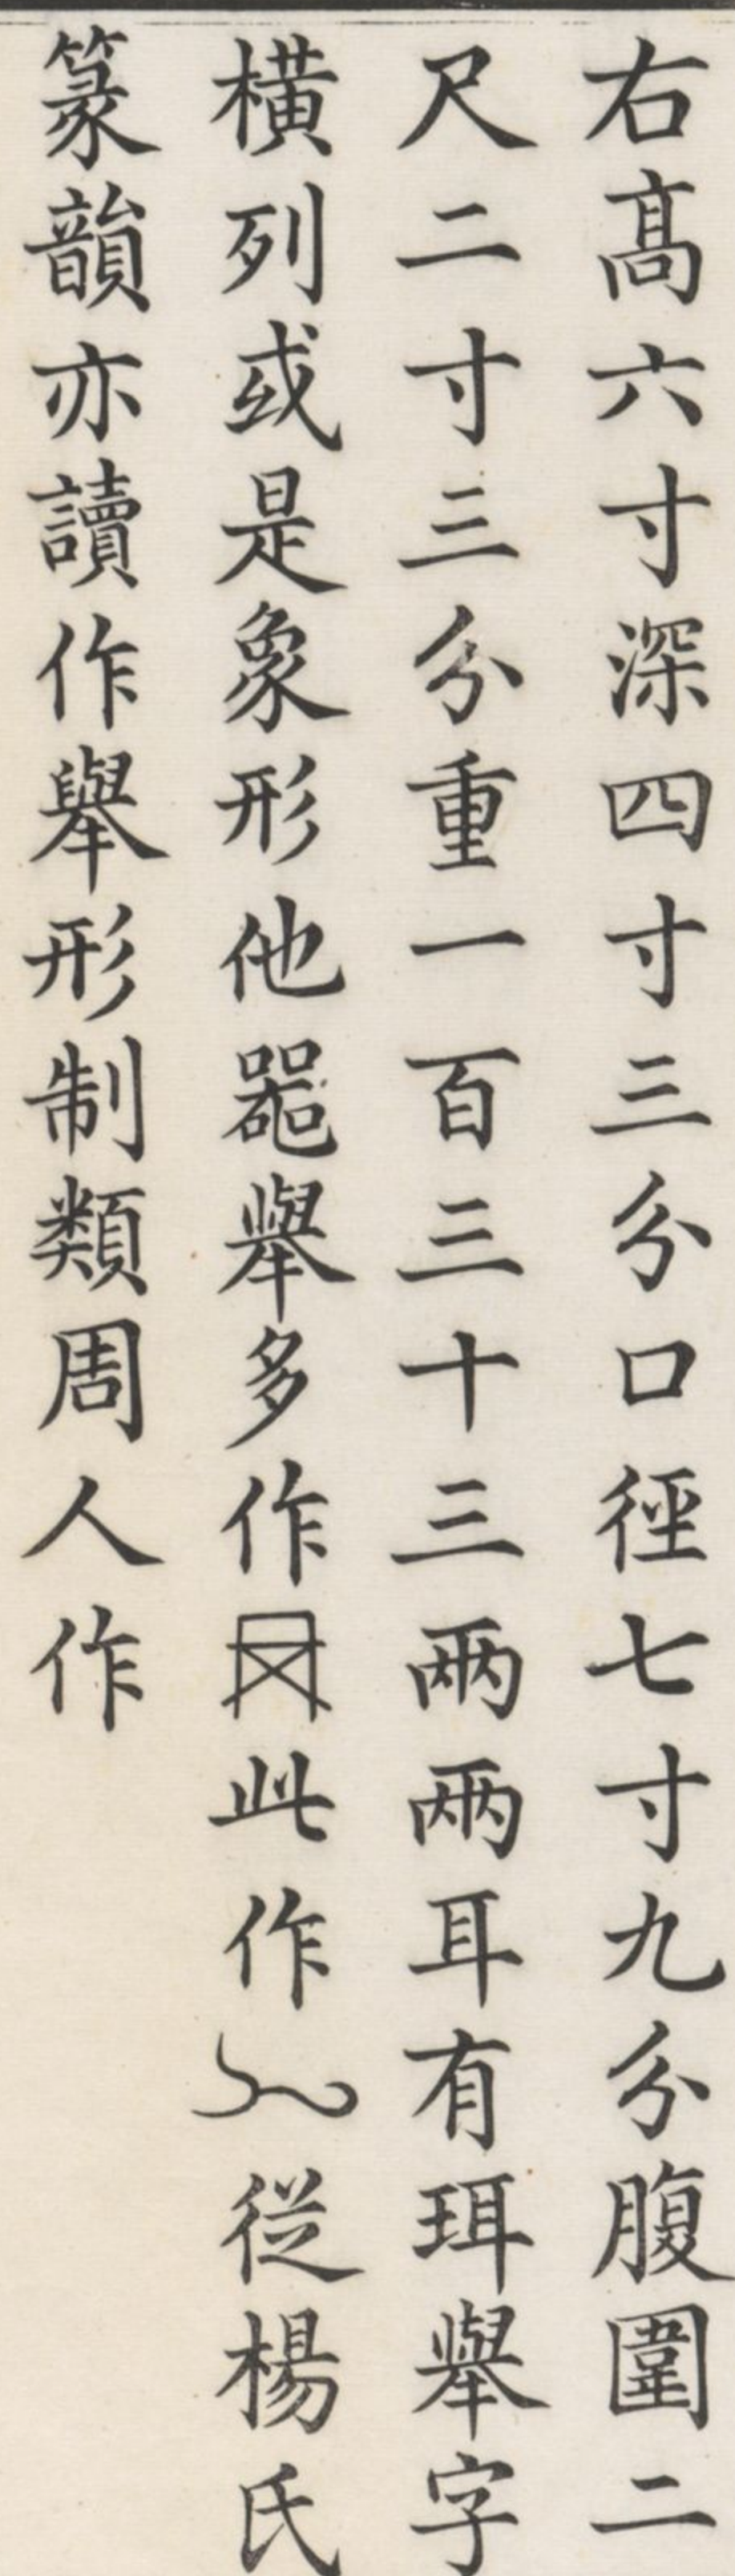 右髙六寸深四寸三分口徑七寸九分腹圍二
尺二寸三分重一百三十三兩兩耳有珥舉字
橫列或是象形他器舉多作此作從楊氏
篆韻亦讀作舉形制類周人作